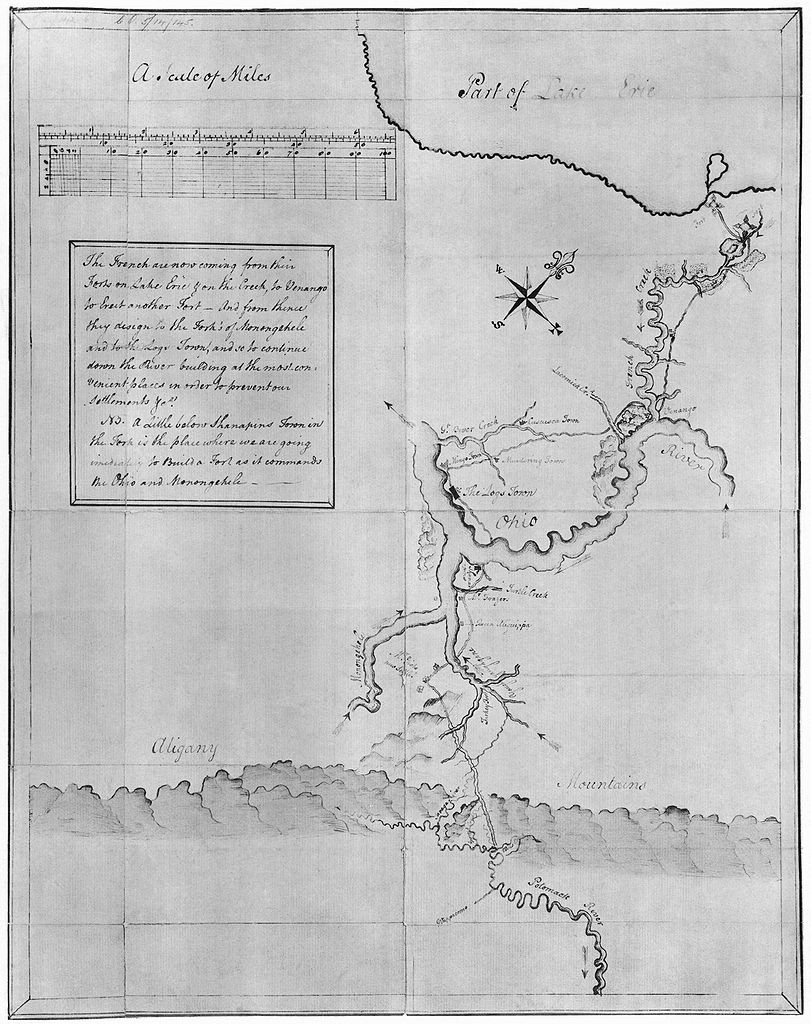 A Scale of Miles
Part of Lake Erie
The French are now coming from their
Forts on Lake Erie & on the Creek, to Venango
to Erect another Fort — And from thence
they design to the Fork's of Monongehele
and to the Logs Town, and so to continue
down the River building at the most con-
venient places in order to prevent our
Settlements &ca
NB. A Little below Shanapins Town in
the Fork is the place where we are going
imediately to Build a Fort as it commands
the Ohio and Monongehele
S
Fort
French Creek
Venango
Gt. Bever Creek
Kuscusca Town
Murdering Town
The Logs Town
Ohio
River
Turtle Creek
Frazer
Queen
Monongehele
Aligany
Mountains
Potomack River